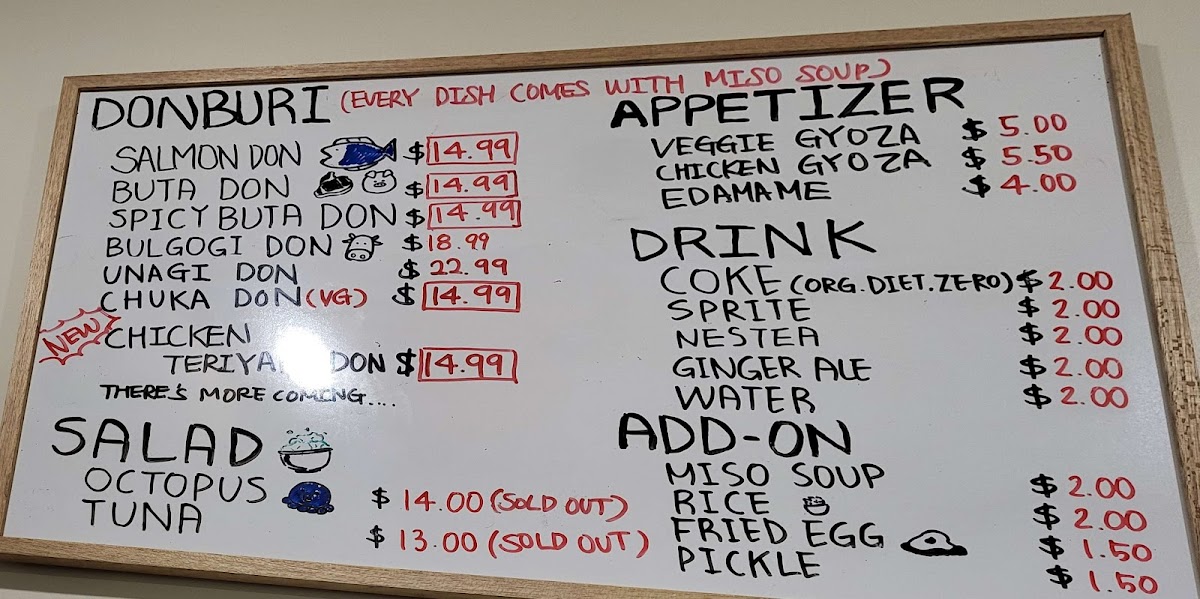 DONBURI (EVERY DISH COMES WITH MISO SOUP)
SALMON DON $14.99
BUTA DON $14.99
SPICY BUTA DON $14.99
BULGOGI DON $18.99
UNAGI DON $22.99
CHUKA DON (VG) $14.99
NEW CHICKEN
DON $14.99
THERE'S MORE COMING....
SALAD
OCTOPUS $14.00 (SOLD OUT)
TUNA $13.00 (SOLD OUT)
APPETIZER
VEGGIE GYOZA $5.00
CHICKEN GYOZA $5.50
EDAMAME $4.00
DRINK
COKE (ORG.DIET.ZERO) $2.00
SPRITE $2.00
NESTEA $2.00
GINGER ALE $2.00
WATER $2.00
ADD-ON
MISO SOUP $2.00
RICE $2.00
FRIED EGG $1.50
PICKLE $1.50